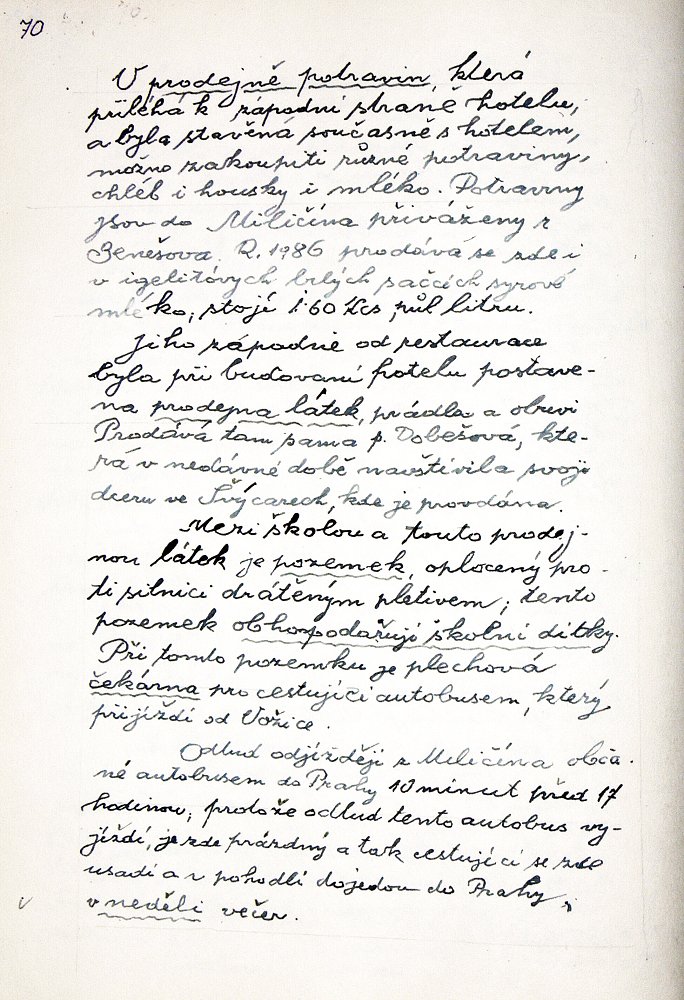 70
V prodejně potravin, která
přiléhá k západní straně hotelu,
a byla stavěná současně s hotelem,
možno zakoupiti různé potraviny,
chléb i housky i mléko. Potraviny
jsou do Miličína přiváženy z
Benešova. R. 1986 prodává se zde i
v igelitových bílých sáčcích syrové
mléko, stojí 1·60 Kčs půl litru.
Jiho západně od restaurace
byla při budovaní hotelu postave-
na prodejna látek, prádla a obuvi
Prodává tam paní p. Dobešová, kte-
rá v nedávné době navštívila svoji
dceru ve Švýcarech, kde je provdána.
Mezi školou a touto prodej-
nou látek je pozemek, oplocený pro-
ti silnici drátěným pletivem; tento
pozemek obhospodařují školní dítky.
Při tomto pozemku je plechová
čekárna pro cestující autobusem, který
přijíždí od Vožice.
Odtud odjíždějí z Miličína obča-
né autobusem do Prahy 10 minut před 17
hodinou; protože odtud tento autobus vy-
jíždí, je zde prázdný a tak cestující se zde
usadí a v pohodlí dojedou do Prahy
v neděli večer.